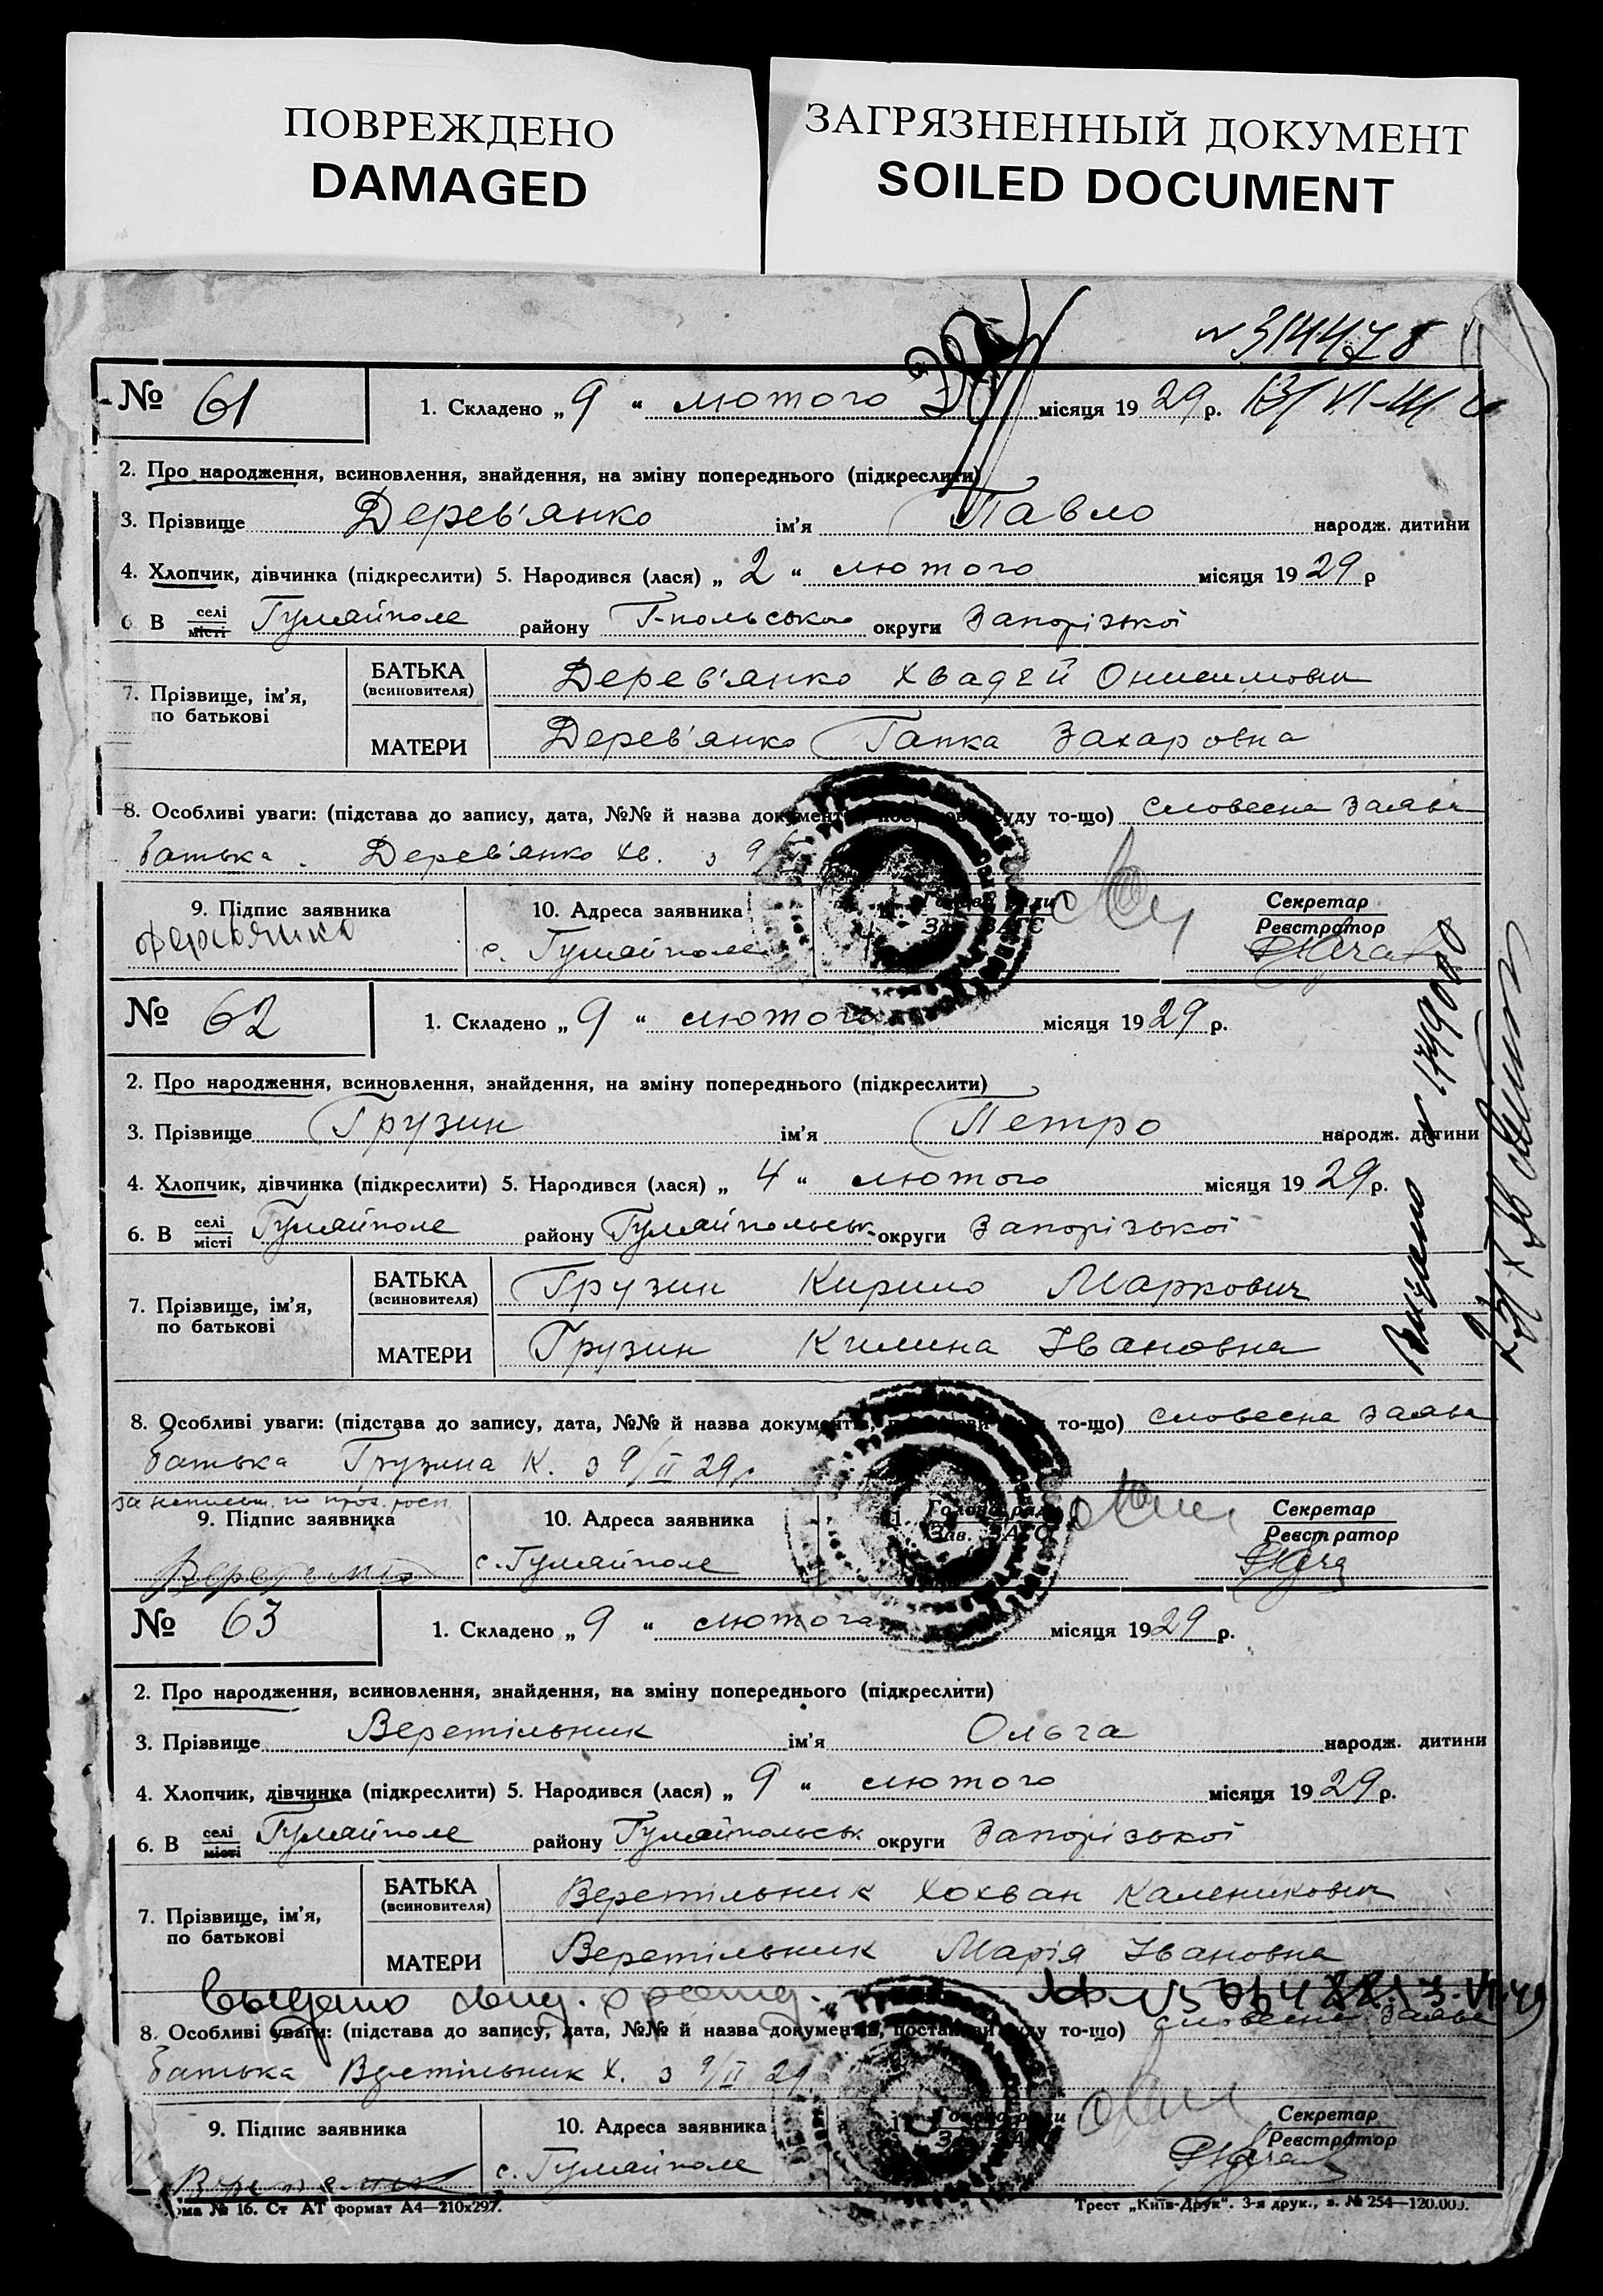 ПОВРЕЖДЕНО
DAMAGED
ЗАГРЯЗНЕННЫЙ ДОКУМЕНТ
SOILED DOCUMENT
№ 61
1. Складено „ 9 “ лютого місяця 19 29 р.
2. Про народження, всиновлення, знайдення, на зміну попереднього (підкреслити)
3. Прізвище Дерев'янко ім'я Павло народж. дитини
4. Хлопчик, дівчинка (підкреслити) 5. Народився (лася) „ 2 “ лютого місяця 19 29 р
6. В селі місті Гуляйполе району Г-польського округи Запорізької
7. Прізвище, ім'я, по батькові
БАТЬКА (всиновителя) Дерев'янко Хвадей Онисимович
МАТЕРИ Дерев'янко Гапка Захаровна
8. Особливі уваги: (підстава до запису, дата, №№ й назва документ то-що) словесна заява
батька. Дерев'янко Хв. з 9/
9. Підпис заявника
10. Адреса заявника
Секретар
Реєстратор
с. Гуляйполе
№ 62
1. Складено „ 9 “ лютого місяця 19 29 р.
2. Про народження, всиновлення, знайдення, на зміну попереднього (підкреслити)
3. Прізвище Грузин ім'я Петро народж. дитини
4. Хлопчик, дівчинка (підкреслити) 5. Народився (лася) „ 4 “ лютого місяця 19 29 р.
6. В селі місті Гуляйполе району Гуляйпольськ. округи Запорізької
7. Прізвище, ім'я, по батькові
БАТЬКА (всиновителя) Грузин Кирило Маркович
МАТЕРИ Грузин Килина Івановна
8. Особливі уваги: (підстава до запису, дата, №№ й назва документів, то-що) словесна заява
батька Грузина К. з 9/II 29р
9. Підпис заявника
10. Адреса заявника
Голова ради
Зав. ЗАГС
Секретар
Реєстратор
с. Гуляйполе
№ 63
1. Складено „ 9 “ лютого місяця 19 29 р.
2. Про народження, всиновлення, знайдення, на зміну попереднього (підкреслити)
3. Прізвище Веретільник ім'я Ольга народж. дитини
4. Хлопчик, дівчинка (підкреслити) 5. Народився (лася) „ 9 “ лютого місяця 19 29 р.
6. В селі місті Гуляйполе району Гуляйпольськ. округи Запорізької
7. Прізвище, ім'я, по батькові
БАТЬКА (всиновителя) Веретільник Хохван Каленикович
МАТЕРИ Веретільник Марія Івановна
8. Особливі уваги: (підстава до запису, дата, №№ й назва документів, постанови суду то-що) словесна заява
батька Веретільник Х. з 9/II 29
9. Підпис заявника
10. Адреса заявника
Секретар
Реєстратор
с. Гуляйполе
ма № 16. Ст АТ формат А4—210х297.
Трест „Київ-Друк“. 3-я друк., з. № 254—120.000.